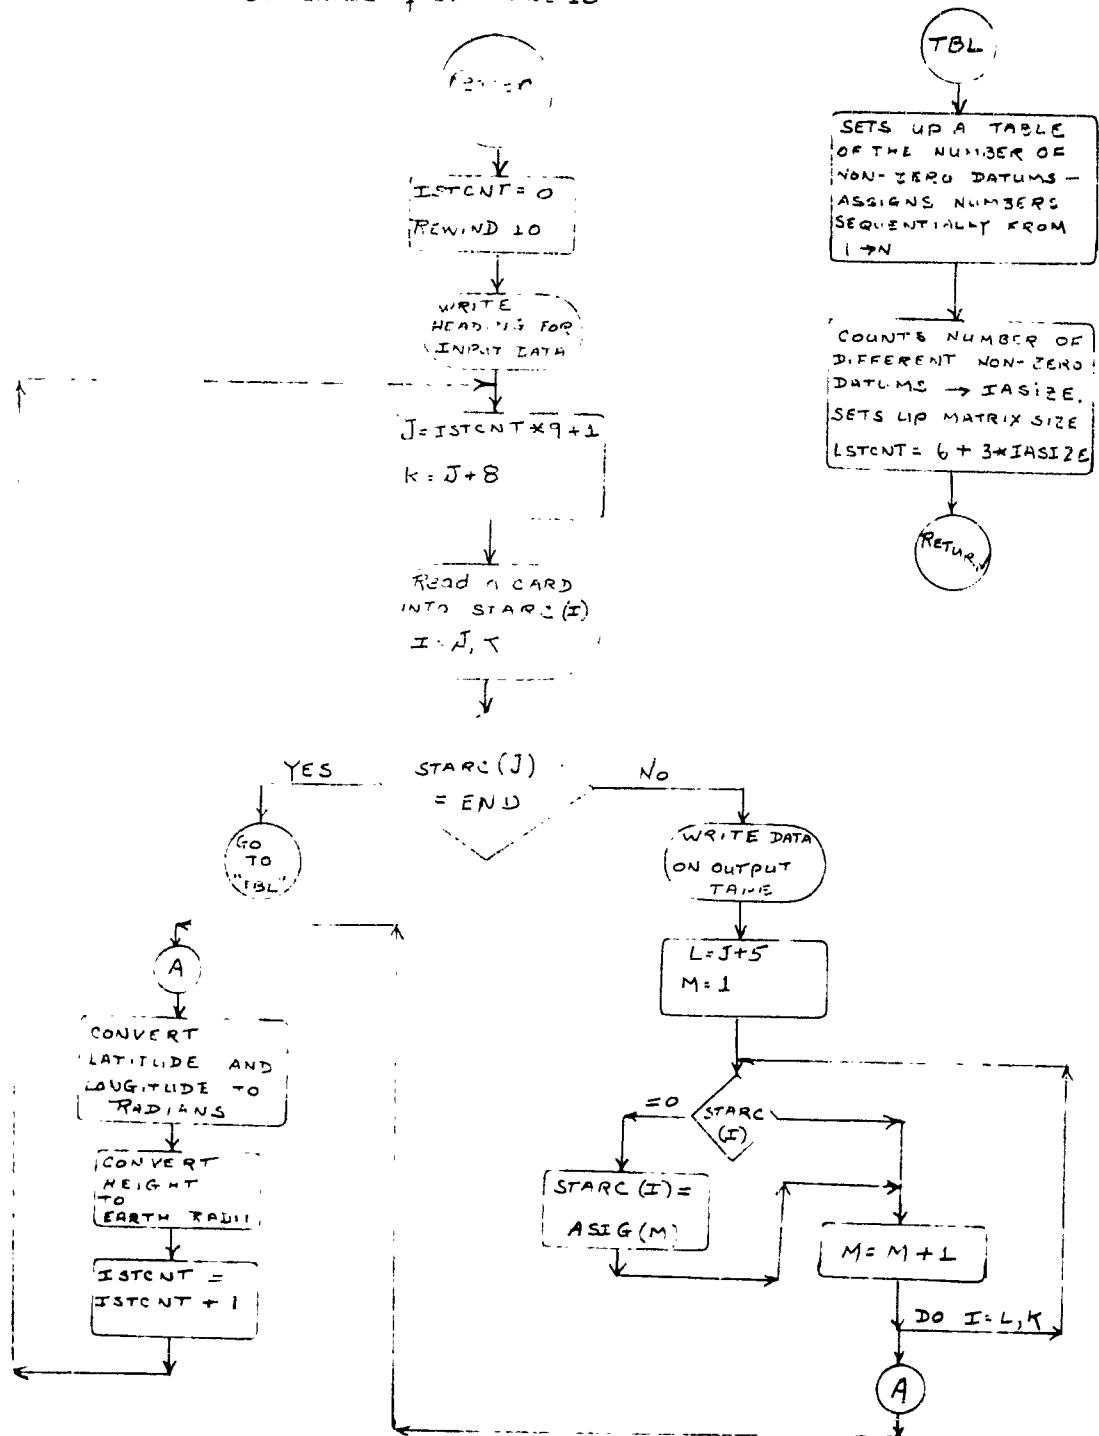 ISTCNT = 0
REWIND 10
WRITE
HEADING FOR
INPUT DATA
J = ISTCNT * 9 + 1
K = J + 8
Read a CARD
INTO STARC (I)
I = J, K
STARC (J)
= END
YES
NO
GO
TO
"TBL"
WRITE DATA
ON OUTPUT
TAPE
L = J + 5
M = 1
STARC
(I)
= 0
STARC (I) =
ASIG (M)
M = M + 1
DO I = L, K
A
A
CONVERT
LATITUDE AND
LONGITUDE TO
RADIANS
CONVERT
HEIGHT
TO
EARTH RADII
ISTCNT =
ISTCNT + 1
TBL
SETS UP A TABLE
OF THE NUMBER OF
NON-ZERO DATUMS -
ASSIGNS NUMBERS
SEQUENTIALLY FROM
1 → N
COUNTS NUMBER OF
DIFFERENT NON-ZERO
DATUMS → IASIZE.
SETS UP MATRIX SIZE
LSTCNT = 6 + 3 * IASIZE
RETURN